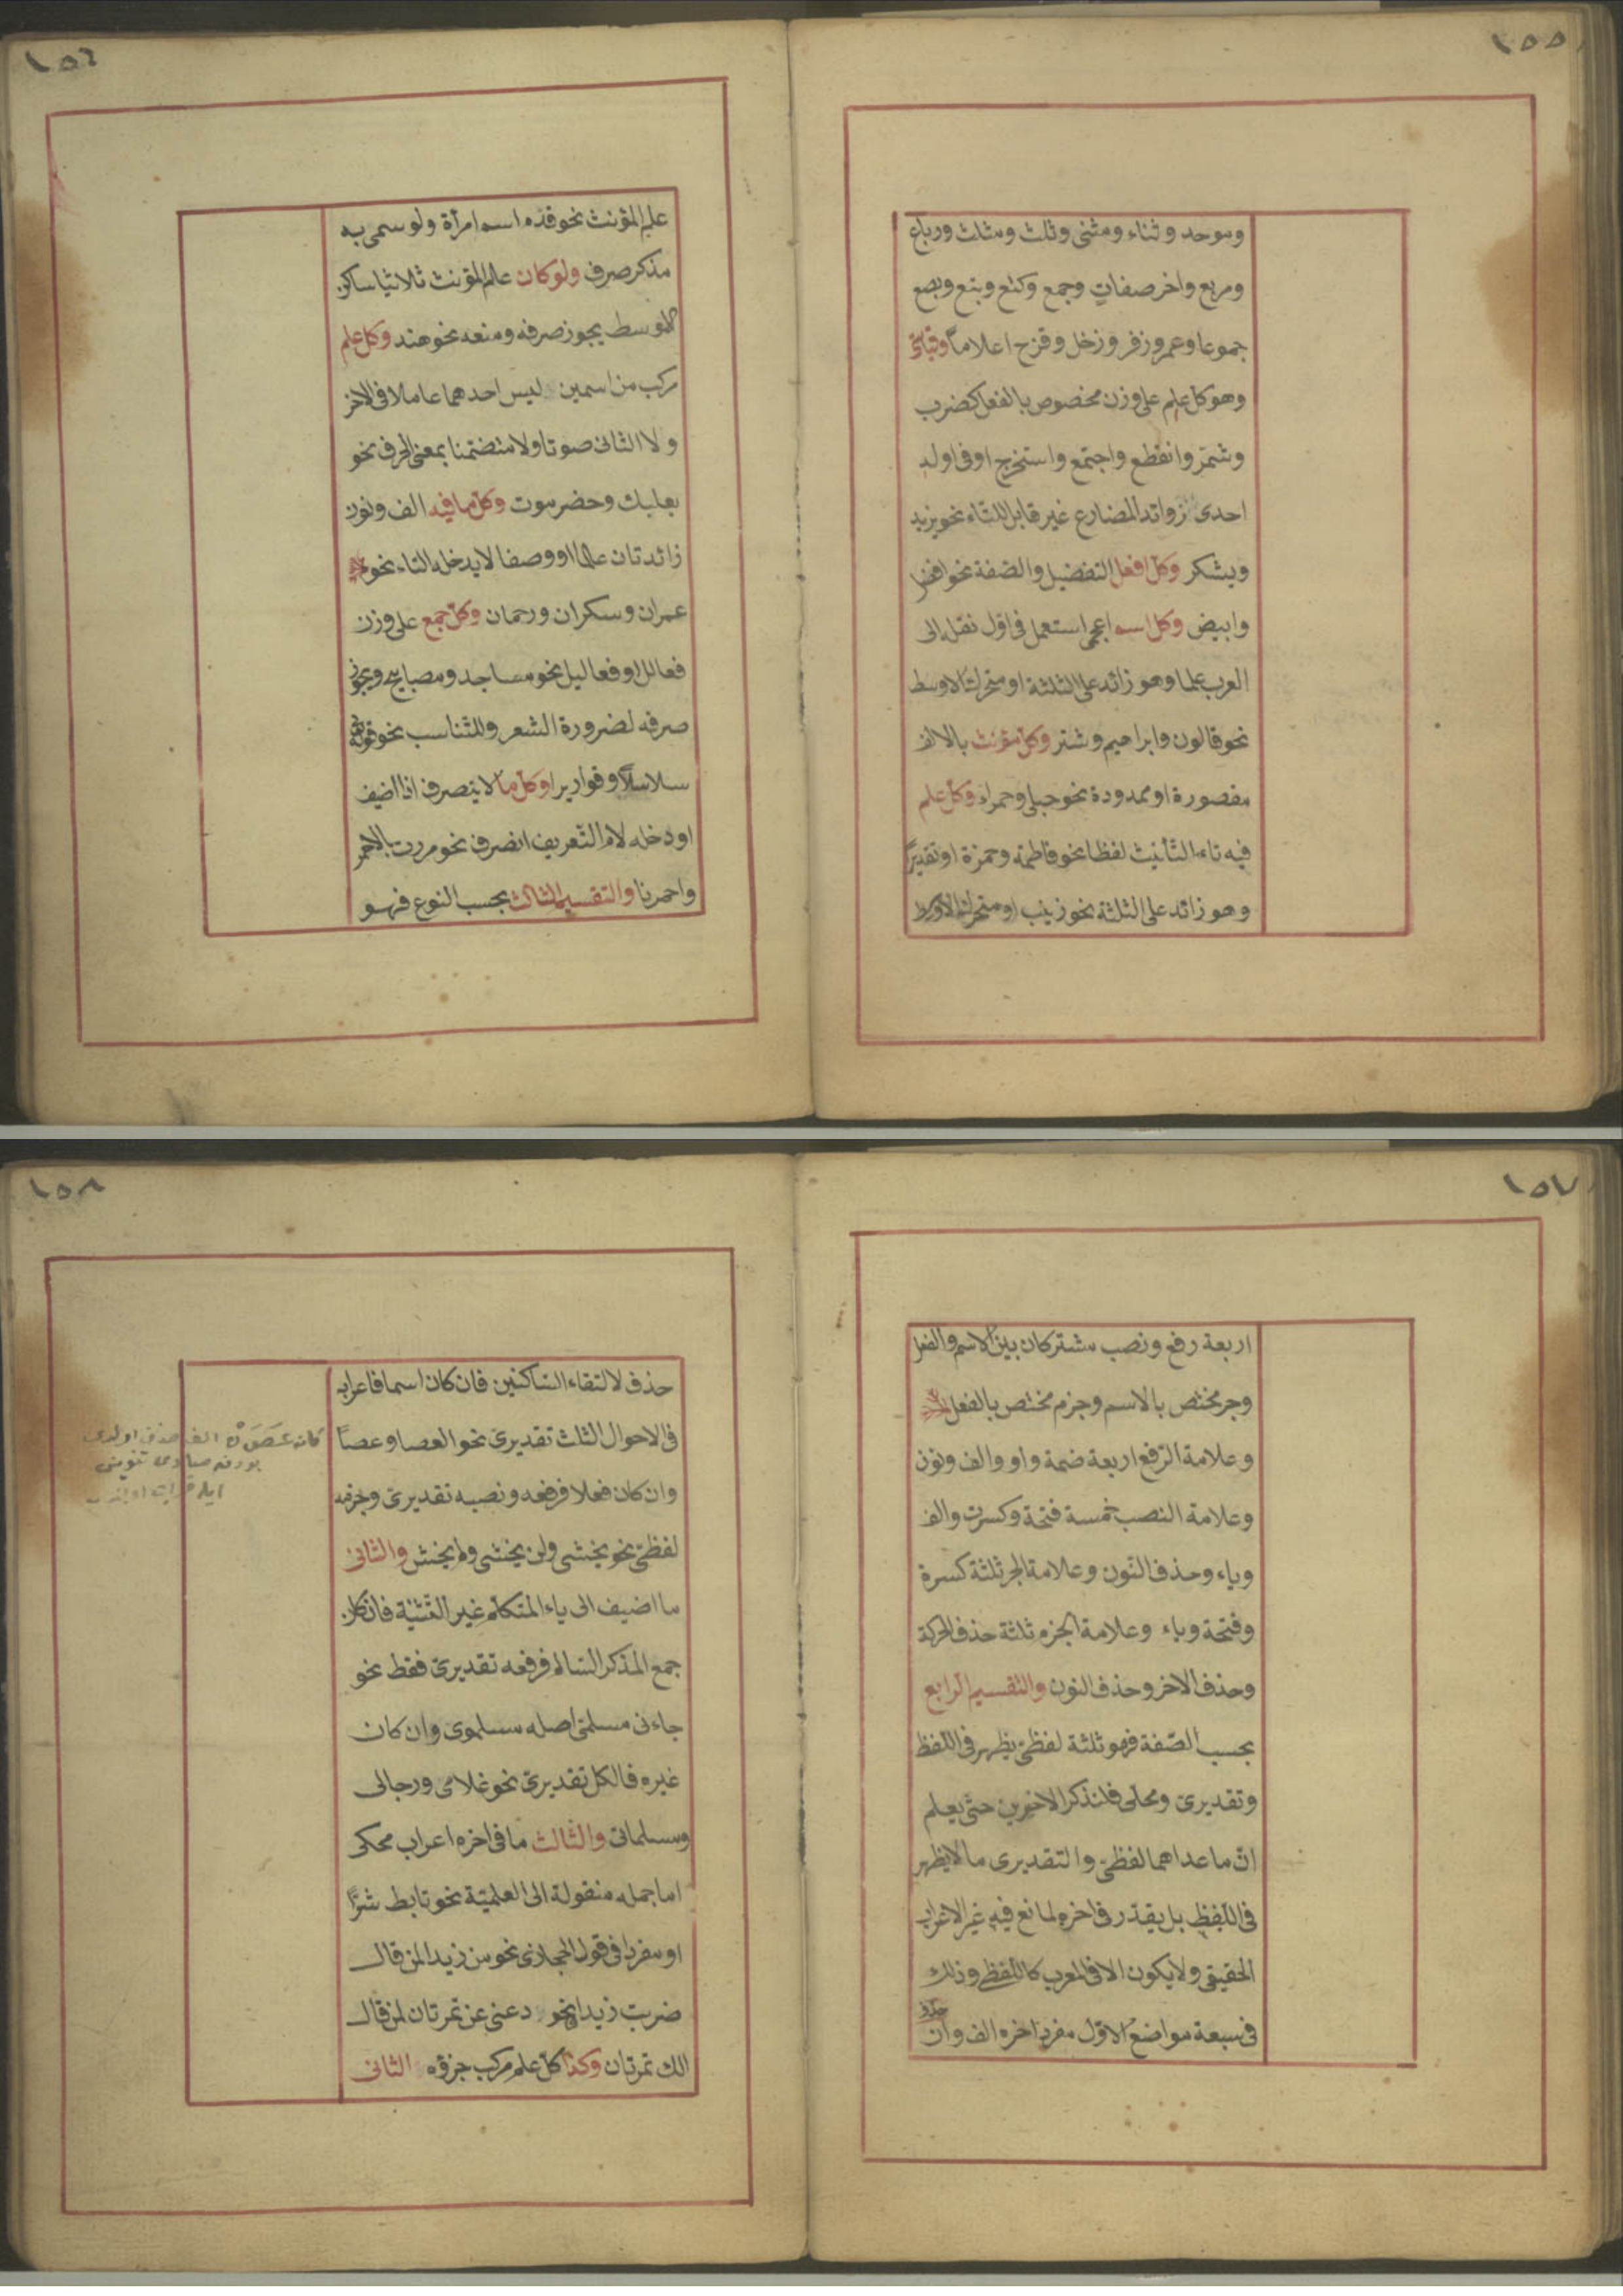 ١٥٥
وموحد وثناء ومثنى وثلث ومثلث ورباع
ومربع واخر صفات وجمع وكتع وبتع وبصع
جموعا وعمر وزفر وزحل وقزح اعلاما وقياسى
وهو كل علم على وزن مخصوص بالفعل كضرب
وشمّر وانقطع واجتمع واستخرج او فى اوله
احدى زوائد المضارع غير قابل للتاء نحو يزيد
ويشكر وكل افعل التفضيل والصّفة نحو افضل
وابيض وكل اسم اعجمى استعمل فى اوّل نقله الى
العرب علما وهو زائد على الثلثة او متحرك الاوسط
نحو قالون وابراهيم وشتر وكلّ مؤنث بالالف
مقصورة او ممدودة نحو حبلى وحمراء وكل علم
فيه تاء التأنيث لفظا نحو فاطمة وحمزة او تقديرًا
وهو زائد على الثلثة نحو زينب او متحرك الاوسط
١٥٦
علم المؤنث نحو قدم اسم امرأة ولو سمى به
مذكر صرف ولو كان علم المؤنث ثلاثيا ساكن
الاوسط يجوز صرفه ومنعه نحو هند وكل علم
ركب من اسمين ليس احدهما عاملا فى الاخر
ولا الثانى صوتا ولا متضمّنا بمعنى الحرف نحو
بعلبك وحضرموت وكل ما فيه الف ونون
زائدتان علما او وصفا لا يدخله التاء نحو
عمران وسكران ورحمان وكل جمع على وزن
فعالل او فعاليل نحو مساجد ومصابيح ويجوز
صرفه لضرورة الشعر وللتناسب نحو قوله
سلاسلًا وقواريرا وكل ما لا ينصرف اذا اضيف
او دخله لام التّعريف انصرف نحو مررت بالاحمر
واحمرنا والتقسيم الثالث بحسب النوع فهو
١٥٧
اربعة رفع ونصب مشتركان بين الاسم والفعل
وجر مختص بالاسم وجزم مختص بالفعل
وعلامة الرّفع اربعة ضمة واو والف ونون
وعلامة النصب خمسة فتحة وكسرت والف
وياء وحذف النّون وعلامة الجر ثلثة كسرة
وفتحة وياء وعلامة الجزم ثلثة حذف الحركة
وحذف الاخر وحذف النون والتقسيم الرابع
بحسب الصّفة فهو ثلثة لفظىّ يظهر فى اللّفظ
وتقديرى ومحلى فلنذكر الاخيرين حتّى يعلم
انّ ما عداهما لفظىّ والتقديرى ما لا يظهر
فى اللّفظ بل يقدّر فى اخره لمانع فيه غير الاعراب
الحقيقى ولا يكون الا فى المعرب كاللّفظى وذلك
حذف
فى سبعة مواضع الاوّل مفرد اخره الف وان
١٥٨
حذف لالتقاء السّاكنين فان كان اسما فاعرابه
فى الاحوال الثلث تقديرى نحو العصا وعصًا
وان كان فعلا فرفعه ونصبه تقديرى وجزمه
لفظىّ نحو يخشى ولن يخشى ولم يخش والثانى
ما اضيف الى ياء المتكلّم غير التّثنية فان كان
جمع المذكر السّالم فرفعه تقديرىّ فقط نحو
جاءنى مسلمىّ اصله مسلموى وان كان
غيره فالكل تقديرىّ نحو غلامى ورجالى
ومسلماتى والثالث ما فى اخره اعراب محكى
اما جمله منقولة الى العلميّة نحو تابط شرًّا
او مفرد فى قول الحجازى نحو من زيدا لمن قال
ضربت زيدا نحو دعنى عن تمرتان لمن قال
الك تمرتان وكذا كلّ علم مركب جزؤه الثانى
كان عَصَوٌ الف حذف اولدى